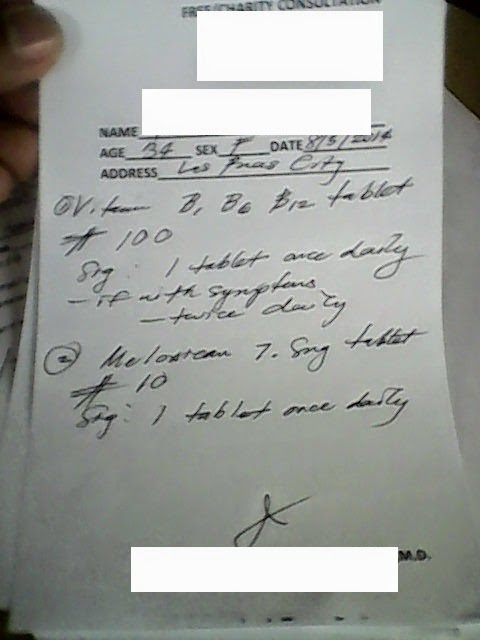 FREE/CHARITY CONSULTATION
NAME
AGE 34 SEX F DATE 8/5/2014
ADDRESS Las Pinas City
① Vitamin B1 B6 B12 tablet
# 100
Sig: 1 tablet once daily
- if with symptoms
- twice daily
② Meloxicam 7.5mg tablet
# 10
Sig: 1 tablet once daily
M.D.